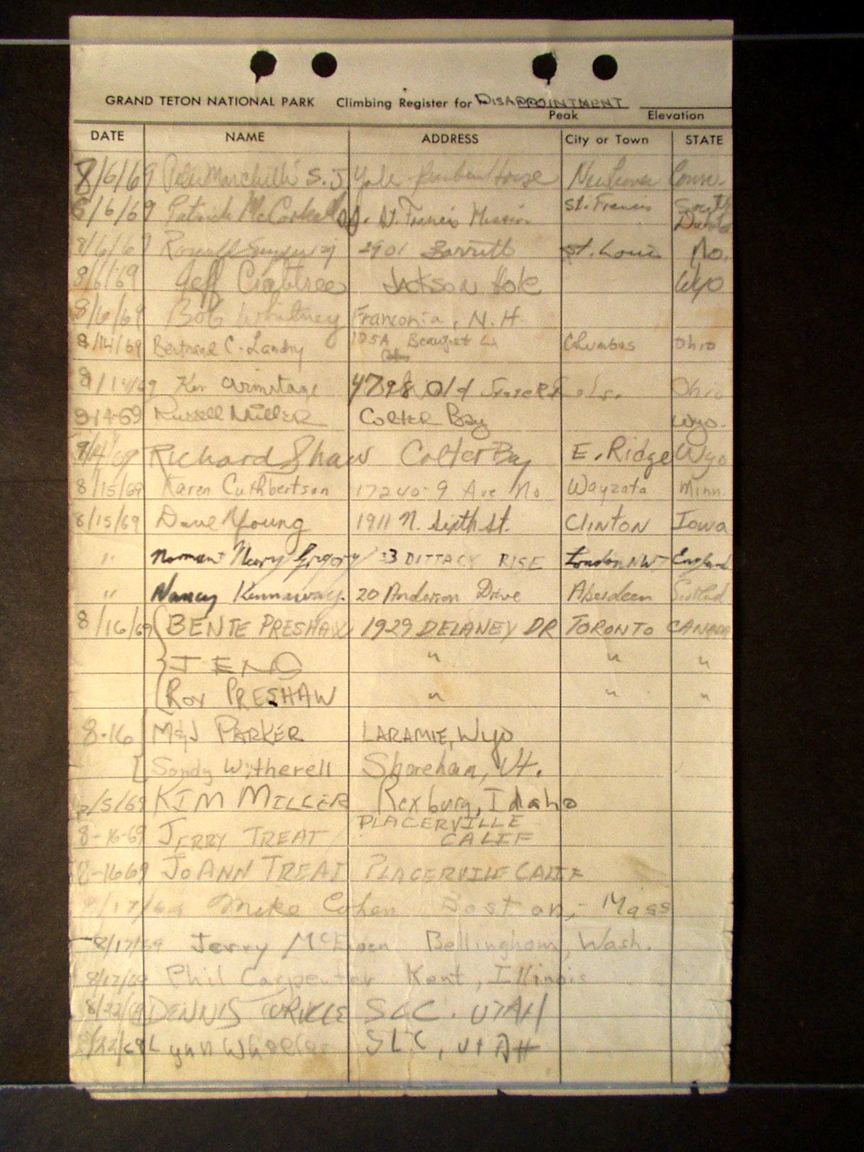 GRAND TETON NATIONAL PARK Climbing Register for DISAPPOINTMENT
Peak Elevation
DATE NAME ADDRESS City or Town STATE
8/6/69 S.J. Yale House New Haven Conn.
8/6/69 Patrick McCorkell S.J. St. Francis Mission St. Francis South Dakota
8/6/69 2901 Barrett St. Louis Mo.
8/6/69 Jeff Crabtree Jackson Hole Wyo
8/6/69 Bob Whitney Franconia, N.H.
8/14/69 Bertrand C. Landry Columbus Ohio
8/14/69 Ken Armitage 4798 Old Ohio
8-14-69 Russell Miller Colter Bay Wyo.
Richard Shaw Colter Bay E. Ridge Wyo
8/15/69 Karen Cuthbertson 17240-9 Ave No Wayzata Minn.
8/15/69 Dave Young 1911 N. Sixth St. CLINTON Iowa
" Norman + Mary Gregory 33 DITTACY RISE London NW7 England
" Nancy Kennaway. 20 Anderson Drive Aberdeen Scotland
8/16/69 BENTE PRESHAW 1929 DELANEY DR TORONTO CANADA
JENO " " "
ROY PRESHAW " " "
8-16 M&J PARKER LARAMIE, Wyo
Sandy Witherell Shoreham, Vt.
KIM MILLER Rexburg, Idaho
8-16-69 JERRY TREAT PLACERVILLE CALIF
8-16 69 JOANN TREAT PLACERVILLE CALIF
8/17/69 Mike Cohen Boston, Mass
8/17/69 Jerry McEwen Bellingham, Wash.
8/17/69 Phil Carpenter Kent, Illinois
8/22/69 DENNIS SLC. UTAH
8/22/69 Lynn Wheeler SLC, UtAH